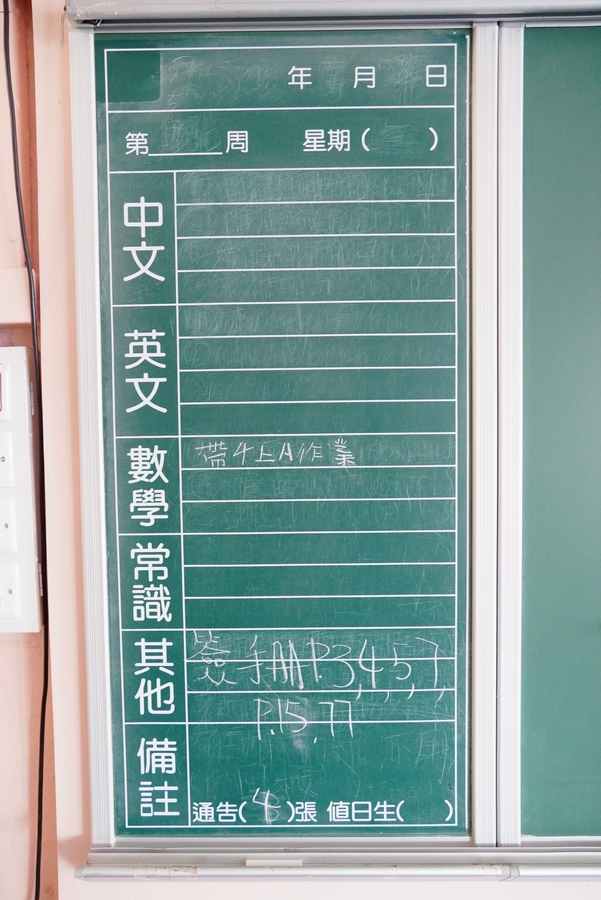 年 月 日
第______周 星期( )
中文
英文
數學 帶4上A作業
常識
其他 簽手冊P.3,4,5,7,
P.15,77
備註 通告(4)張 值日生( )